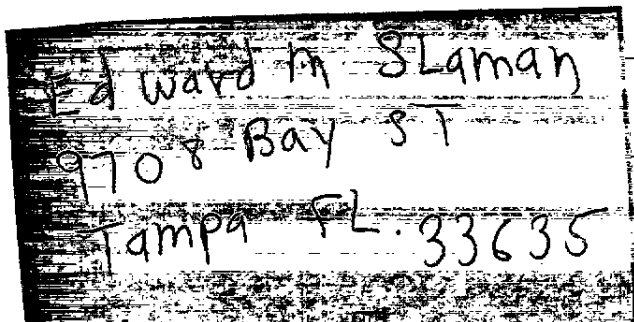 Edward M SLaman
9708 Bay ST
Tampa FL. 33635